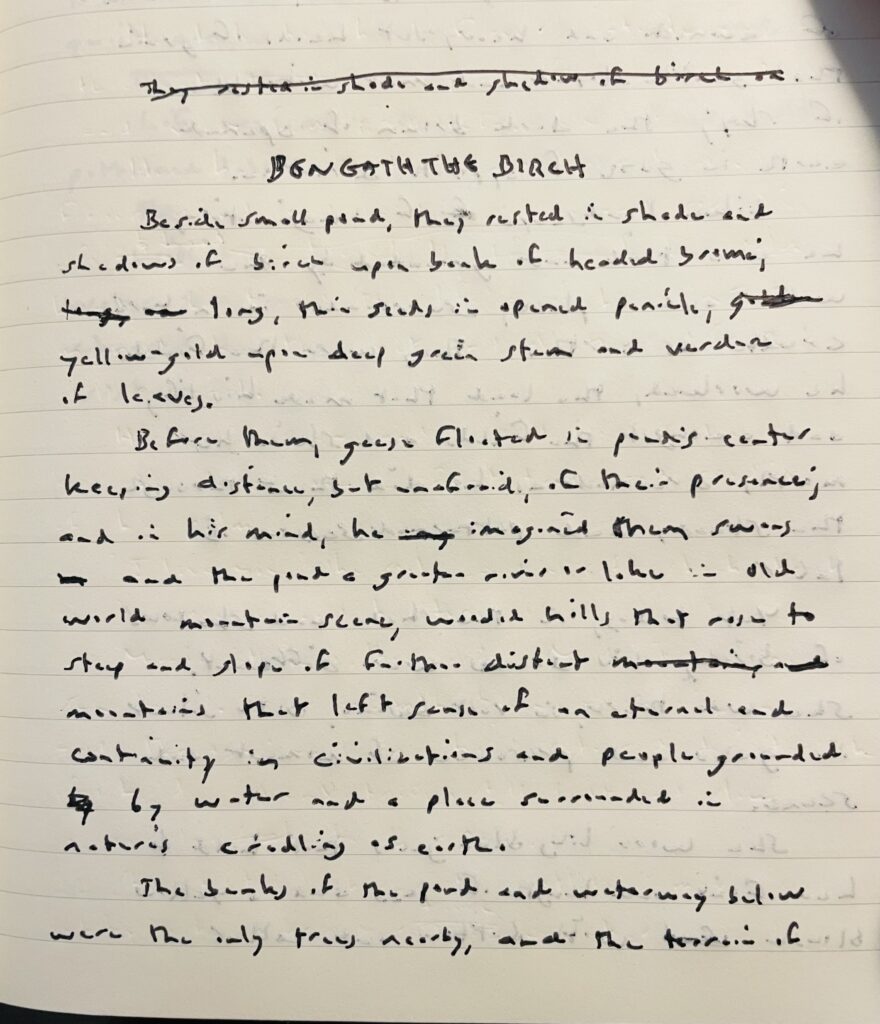 They rested in shade and shadow of birch on
BENEATH THE BIRCH
Beside small pond, they rested in shade and
shadows of birch upon bank of headed brome,
long, thin seeds in opened panicle,
yellow-gold upon deep green stem and verdure
of leaves.
Before them, geese floated in pond's center
keeping distance, but unafraid, of their presence;
and in his mind, he imagined them swans
and the pond a greater river or lake in old
world mountain scene, wooded hills that rose to
steep and slope of further distant mountains and
mountains that left sense of an eternal and
continuity in civilizations and people grounded
by water and a place surrounded in
nature's cradling of earth.
The banks of the pond and waterway below
were the only trees nearby, and the terrain of